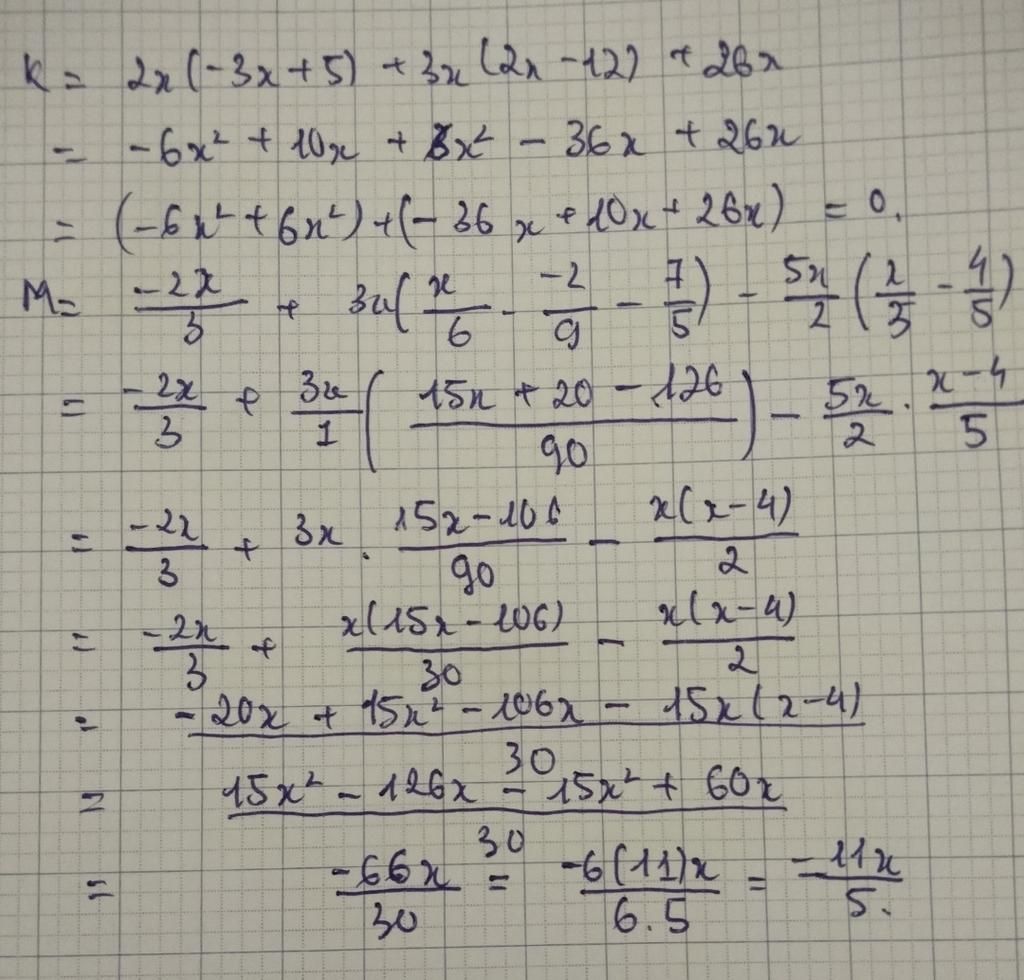 K = 2x(-3x+5) + 3x(2x-12) + 26x
= -6x² + 10x + 6x² - 36x + 26x
= (-6x² + 6x²) + (-36x + 10x + 26x) = 0.
M = \frac{-2x}{3} + 3x(\frac{x}{6} - \frac{-2}{9} - \frac{7}{5}) - \frac{5x}{2}(\frac{x}{5} - \frac{4}{5})
= \frac{-2x}{3} + \frac{3x}{1}(\frac{15x + 20 - 126}{90}) - \frac{5x}{2} . \frac{x-4}{5}
= \frac{-2x}{3} + 3x . \frac{15x-106}{90} - \frac{x(x-4)}{2}
= \frac{-2x}{3} + \frac{x(15x-106)}{30} - \frac{x(x-4)}{2}
= \frac{-20x + 15x² - 106x - 15x(x-4)}{30}
= \frac{15x² - 126x - 15x² + 60x}{30}
= \frac{-66x}{30} = \frac{-6(11)x}{6.5} = \frac{-11x}{5}.